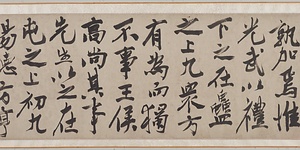 孰加焉惟
光武以禮
下之在蠱
之上九眾方
有為而獨
不事王侯
高尚其事
先生以之在
屯之上初九
陽德方亨